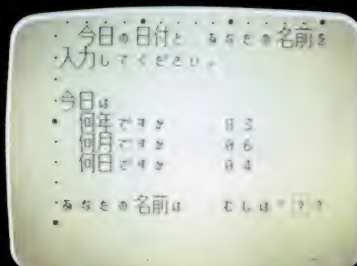 今日の日付と あなたの名前を
入力してください。
今日は
何年ですか 83
何月ですか 06
何日ですか 04
あなたの名前は むしは°??